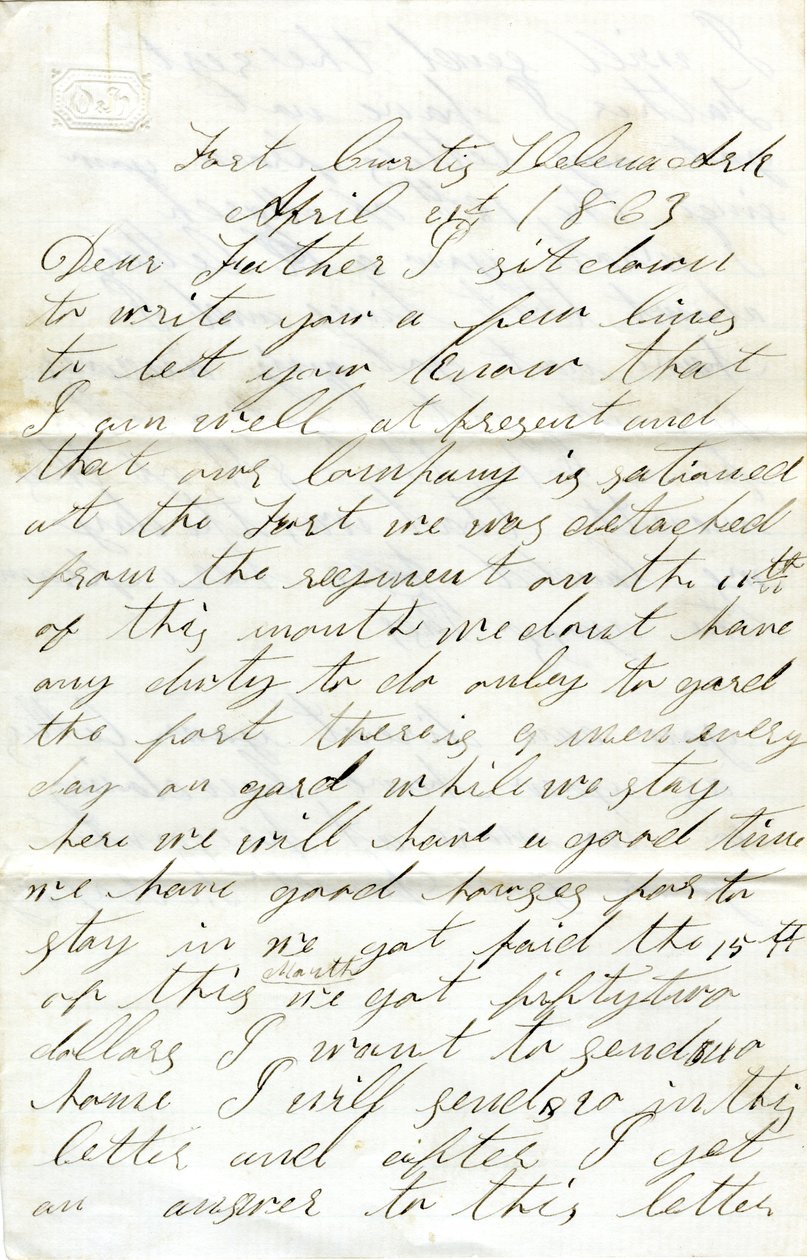 Fort Curtis Helena Ark
April 21st 1863
Dear Father I sit down
to write your a few lines
to let your know that
I am well at present and
that our Company is sationed
at the Fort we was detached
from the regment on the 11th
of this month we dont have
any duty to do onley to gard
the fort thereis 9 men every
day on gard while we stay
here we will have a good time
we have good houses for to
stay in we got paid the 15th
of this Month we got fiftytwo
dollars I want to send
home I will send in this
letter and after I get
an answer to this letter